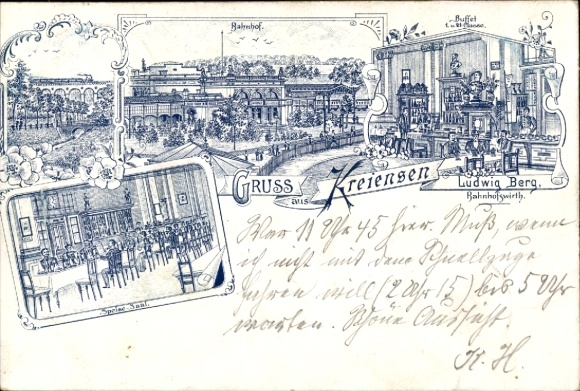 Bahnhof.
Buffet
I. u. II. Classe.
GRUSS aus Kreiensen
Ludwig Berg,
Bahnhofswirth.
Speise Saal.
War 11 Uhr 45 hier. Muß, wenn
ich nicht mit dem Schnellzuge
fahren will (2 Uhr 15) bis 5 Uhr
warten. Schöne Aussicht.
H. H.